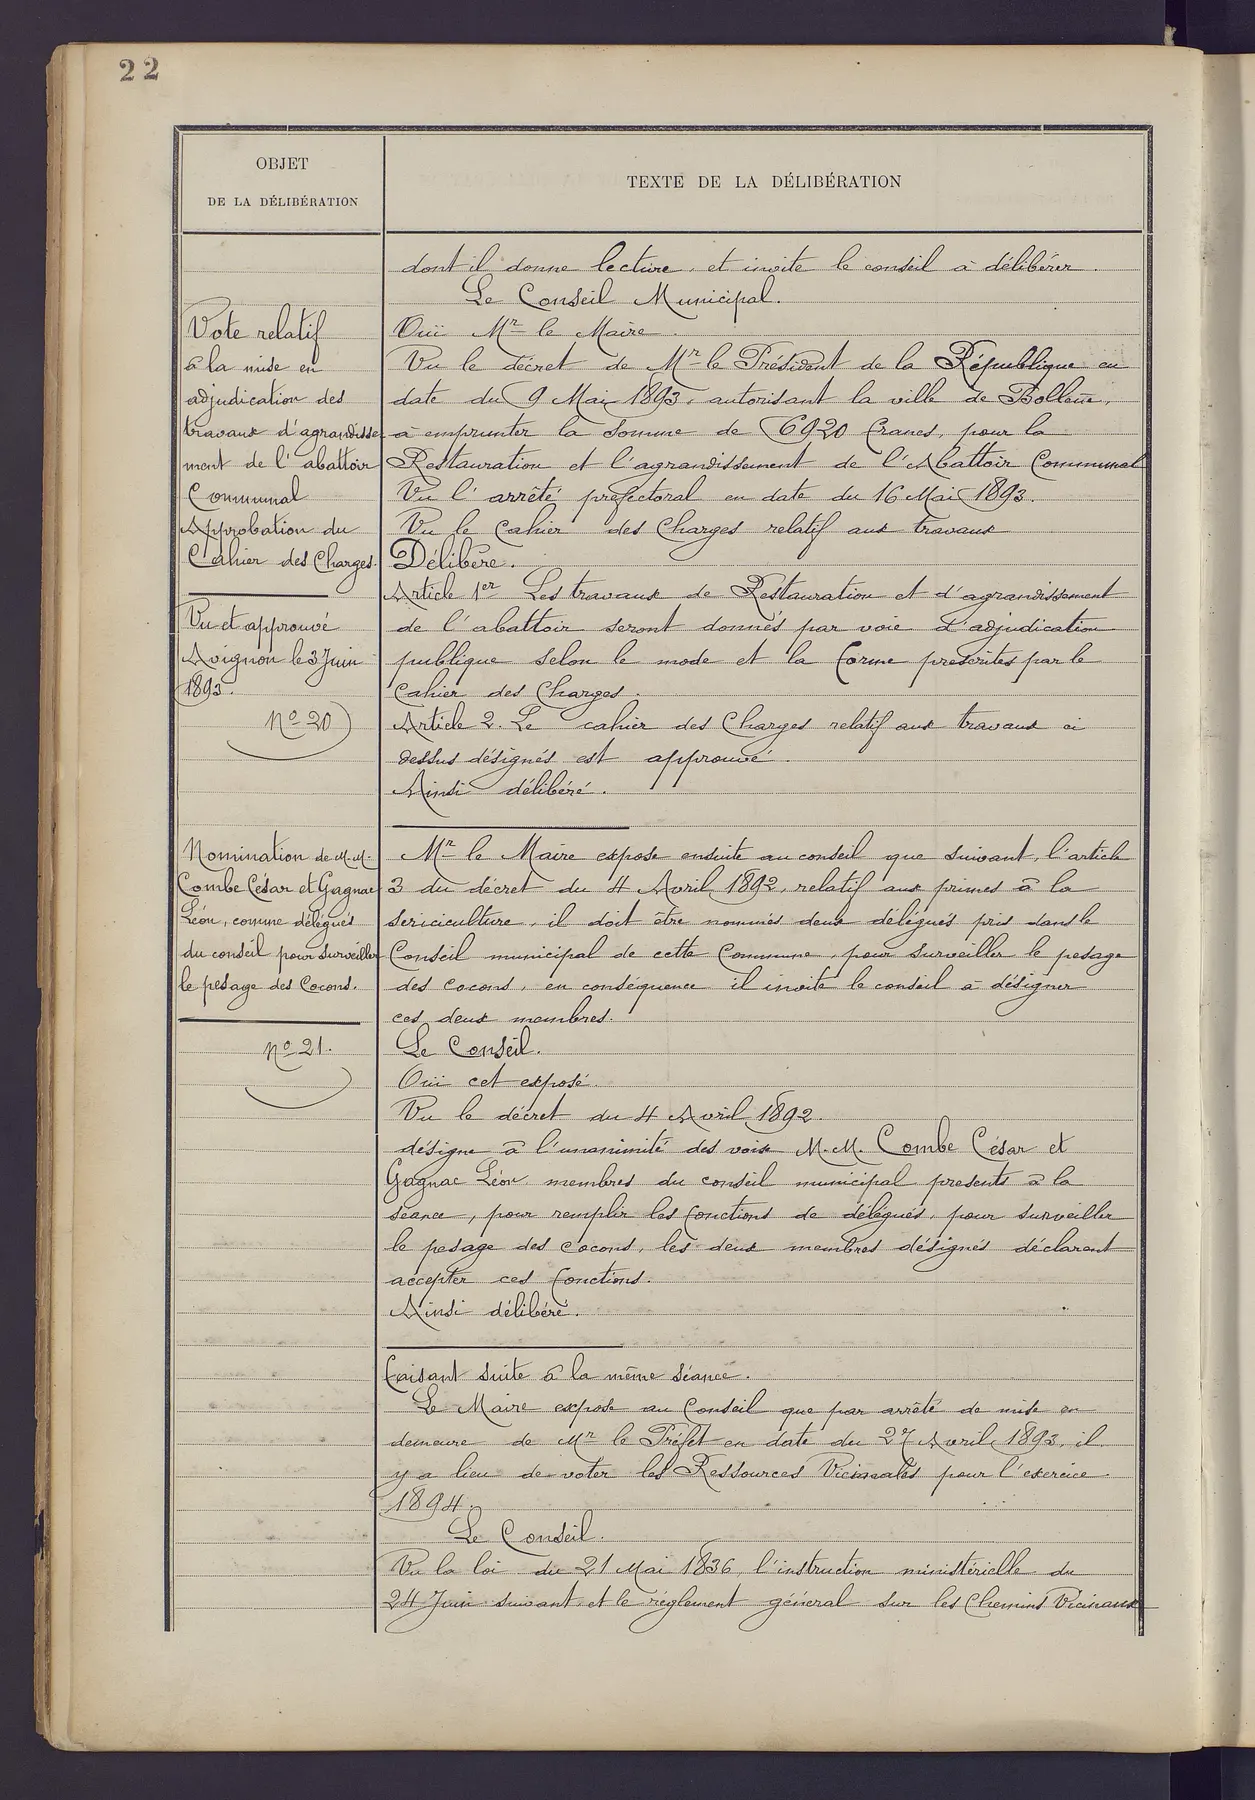 22
OBJET
DE LA DÉLIBÉRATION
TEXTE DE LA DÉLIBÉRATION
Vote relatif
à la mise en
adjudication des
travaux d'agrandisse
ment de l'abattoir
Communal
Approbation du
Cahier des Charges.
Vu et approuvé
Avignon le 3 Juin
1893.
No 20
Nomination de M.M.
Combe César et Gagnac
Léon, comme délégués
du conseil pour surveiller
le pesage des Cocons.
No 21.
dont il donne lecture, et invite le conseil à délibérer.
Le Conseil Municipal.
Ouï Mr le Maire.
Vu le décret de Mr le Président de la République en
date du 9 Mai 1893, autorisant la ville de Bollène,
à emprunter la somme de 6920 francs, pour la
Restauration et l'agrandissement de l'Abattoir Communal
Vu l'arrêté préfectoral en date du 16 Mai 1893.
Vu le Cahier des Charges relatif aux travaux
Délibère.
Article 1er Les travaux de Restauration et d'agrandissement
de l'abattoir seront donnés par voie d'adjudication
publique selon le mode et la forme prescrites par le
Cahier des Charges.
Article 2. Le cahier des Charges relatif aux travaux ci
dessus désignés est approuvé.
Ainsi délibéré.
Mr le Maire expose ensuite au conseil que suivant l'article
3 du décret du 4 Avril 1892, relatif aux primes à la
sericiculture, il doit être nommés deux délégués pris dans le
Conseil municipal de cette Commune, pour surveiller le pesage
des cocons, en conséquence il invite le conseil à désigner
ces deux membres.
Le Conseil.
Ouï cet exposé.
Vu le décret du 4 Avril 1892.
désigne à l'unanimité des voix M.M. Combe César et
Gagnac Léon membres du conseil municipal presents à la
séance, pour remplir les fonctions de délégués, pour surveiller
le pesage des cocons, les deux membres désignés déclarent
accepter ces fonctions.
Ainsi délibéré.
Faisant suite à la même séance.
Le Maire expose au Conseil que par arrêté de mise en
demeure de Mr le Préfet en date du 27 Avril 1893, il
y a lieu de voter les Ressources Vicinales pour l'exercice
1894.
Le Conseil.
Vu la loi du 21 Mai 1836, l'instruction ministérielle du
24 Juin suivant, et le règlement général sur les Chemins Vicinaux